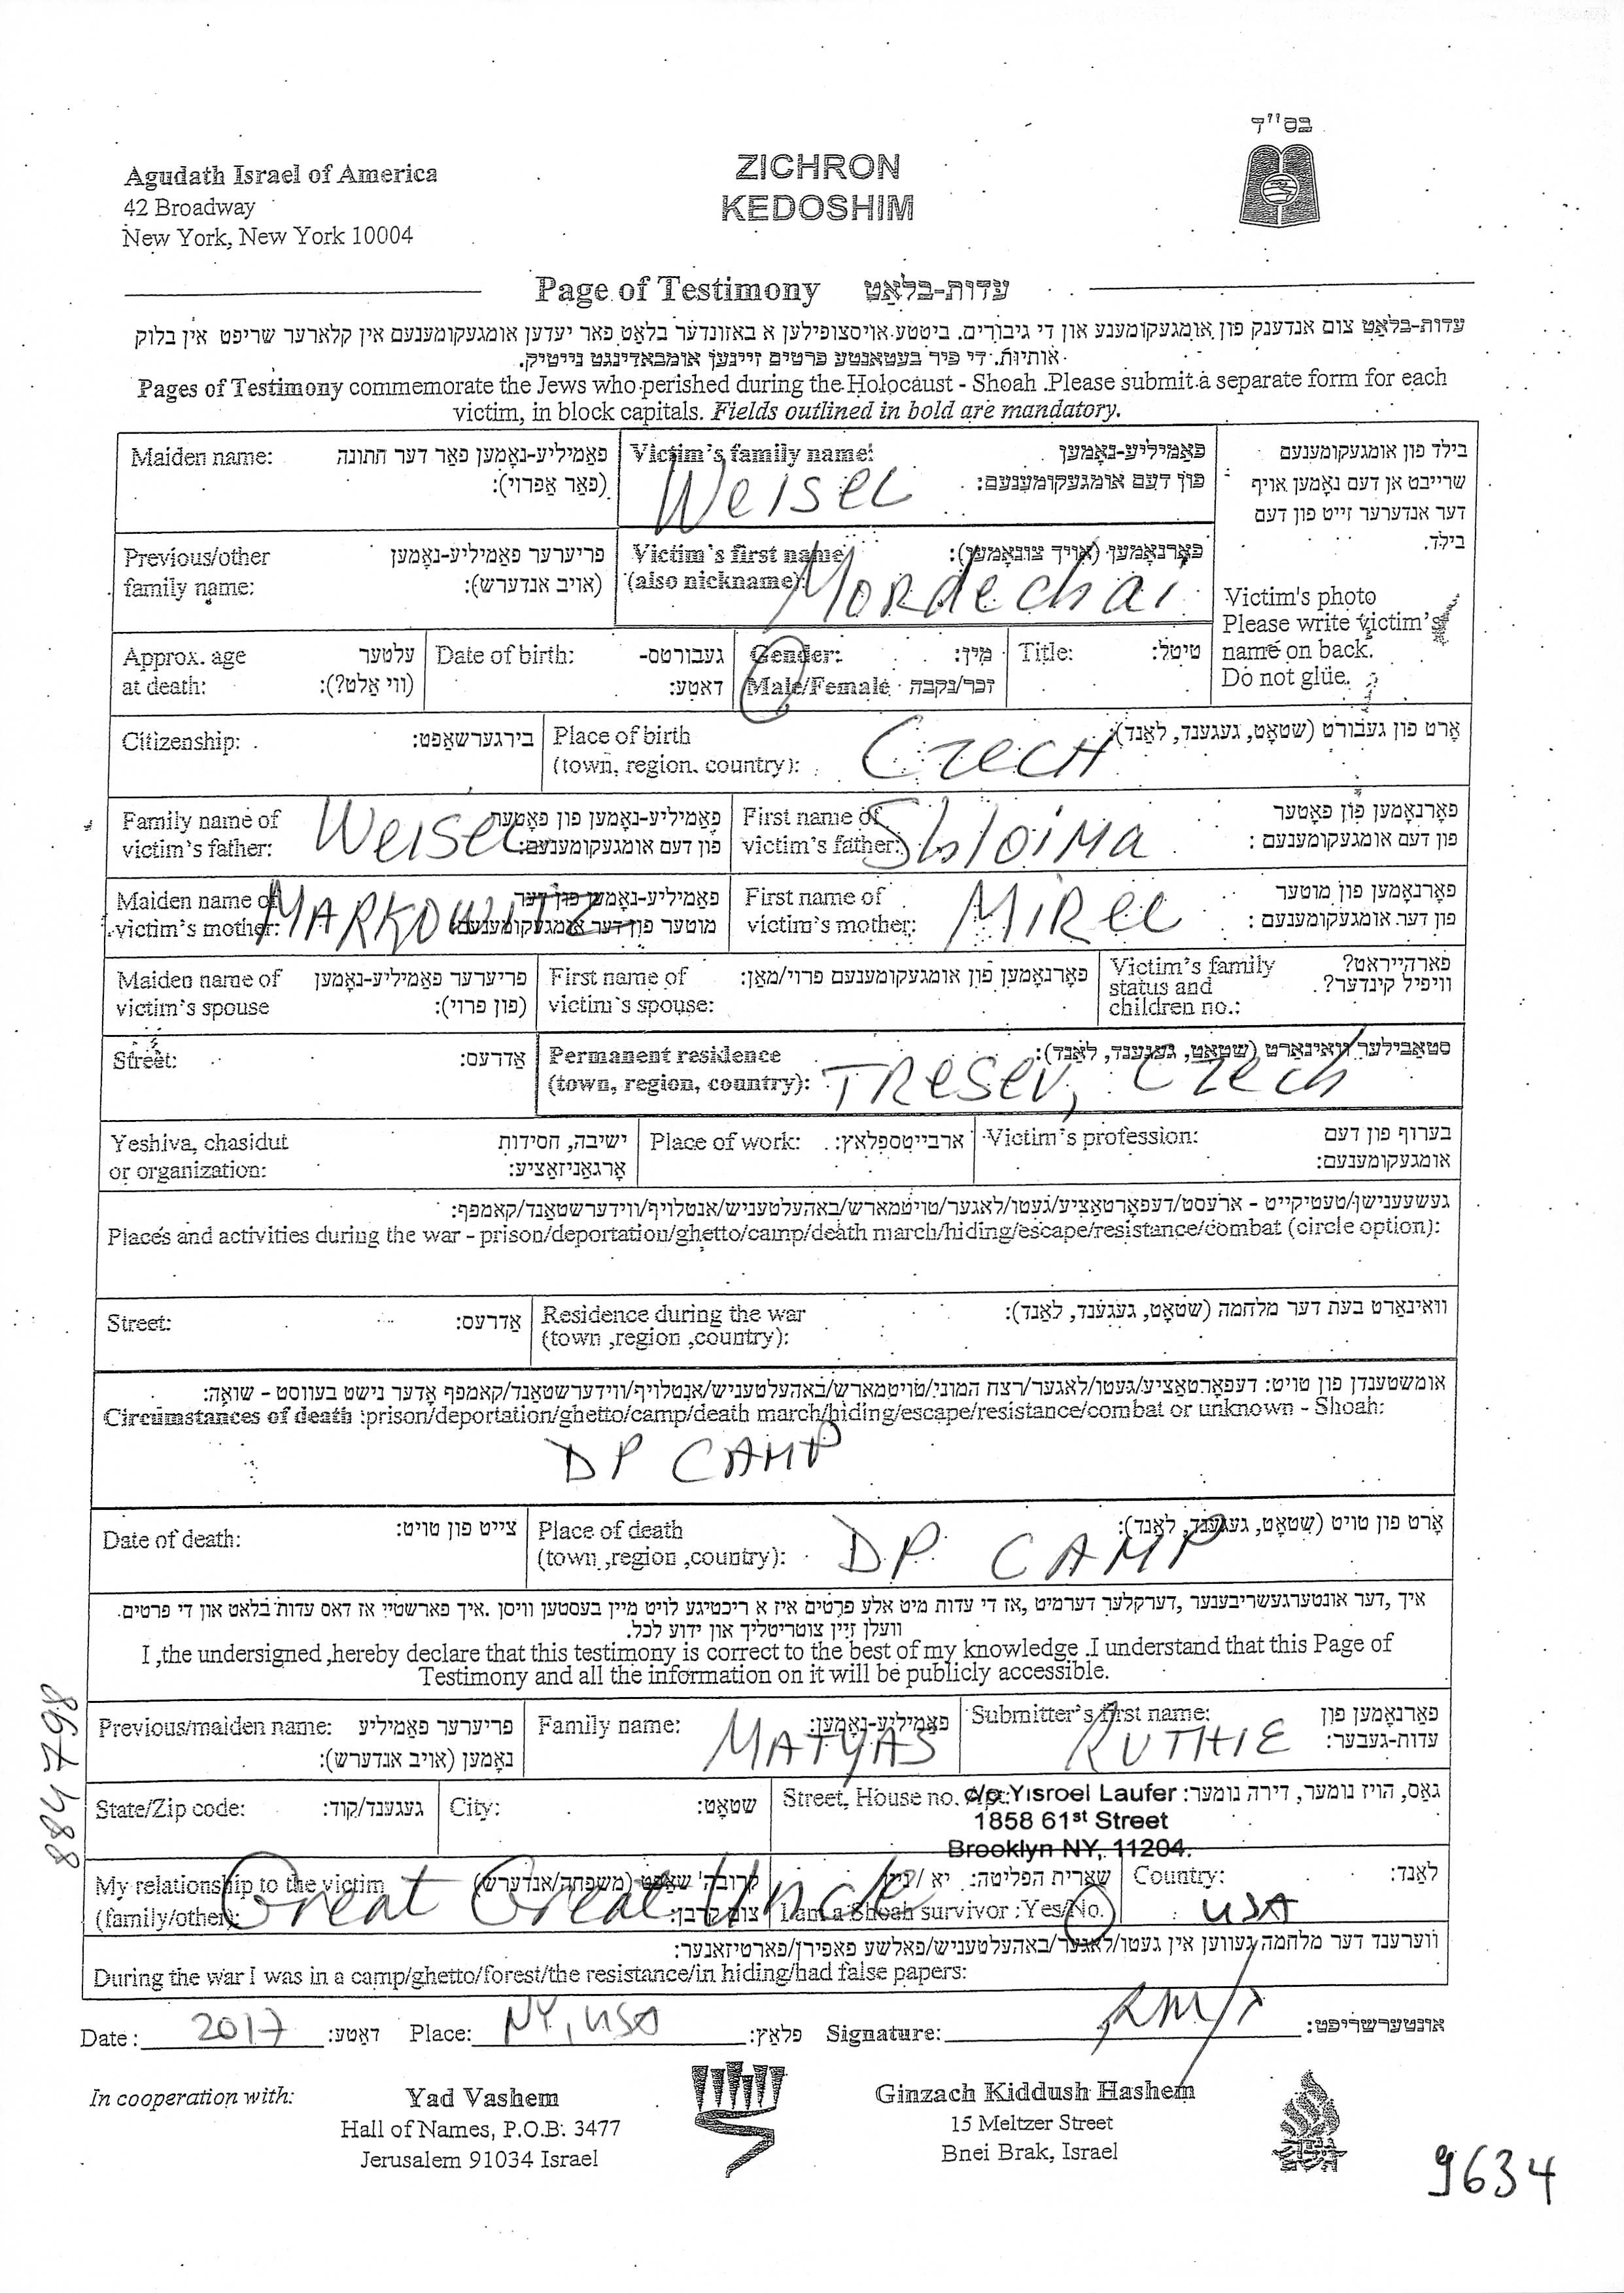 בס"ד
Agudath Israel of America
42 Broadway
New York, New York 10004
ZICHRON
KEDOSHIM
Page of Testimony עדות-בלאַט
עדות-בלאַט צום אנדענק פון אומגעקומענע און די גיבורים. ביטטע אויסצופילען א באזונדער בלאַט פאר יעדען אומגעקומענעם אין קלארער שריפט אין בלוק
אותיות. די פיר בעטאנטע פרטים זיינען אומבאדינגט נייטיק.
Pages of Testimony commemorate the Jews who perished during the Holocaust - Shoah .Please submit a separate form for each
victim, in block capitals. Fields outlined in bold are mandatory.
Maiden name: פאַמיליע-נאָמען פאַר דער חתונה
(פאַר אַפרוי):
Victim's family name: פאַמיליע-נאָמען
פון דעם אומגעקומענעם:
Weisel
בילד פון אומגעקומענעם
שרייבט אן דעם נאָמען אויף
דער אנדערער זייט פון דעם
בילד.
Victim's photo
Please write victim's
name on back.
Do not glue.
Previous/other פריערער פאַמיליע-נאָמען
family name: (אויב אנדערש):
Victim's first name פאָרנאָמען (אויך צונאָמען):
(also nickname):
Mordechai
Approx. age עלטער
at death: (ווי אַלט?):
Date of birth: געבורטס-
דאַטע:
Gender: מין:
Male/Female זכר/נקבה
Title: טיטל:
Citizenship: בירגערשאַפט:
Place of birth אָרט פון געבורט (שטאָט, געגענד, לאַנד):
(town, region. country):
Czech
Family name of פאַמיליע-נאָמען פון פאָטער
victim's father: פון דעם אומגעקומענעם:
Weisel
First name of פאָרנאָמען פון פאָטער
victim's father: פון דעם אומגעקומענעם :
Shloima
Maiden name of פאַמיליע-נאָמען פון דער
victim's mother: מוטער פון דער אומגעקומענעם:
MARKOWITZ
First name of פאָרנאָמען פון מוטער
victim's mother: פון דער אומגעקומענעם :
Mirel
Maiden name of פריערער פאַמיליע-נאָמען
victim's spouse (פון פרוי):
First name of פאָרנאָמען פון אומגעקומענעם פרוי/מאַן:
victim's spouse:
Victim's family פארהייראט?
status and וויפיל קינדער?
children no.:
Street: אַדרעס:
Permanent residence סטאַבילער וואוינאָרט (שטאָט, געגענד, לאַנד):
(town, region, country):
TRESEV, Czech
Yeshiva, chasidut ישיבה, חסידות
or organization: אָרגאַניזאַציע:
Place of work: ארבייטספלאַץ:
Victim's profession: בערוף פון דעם
אומגעקומענעם:
געשעענישן/טעטיקייט - ארעסט/דעפאָרטאַציע/געטו/לאגער/טויטמארש/באַהעלטעניש/אנטלויף/ווידערשטאַנד/קאמפף:
Places and activities during the war - prison/deportation/ghetto/camp/death march/hiding/escape/resistance/combat (circle option):
Street: אַדרעס:
Residence during the war וואוינאָרט בעת דער מלחמה (שטאָט, געגענד, לאַנד):
(town ,region ,country):
אומשטענדן פון טויט: דעפאָרטאַציע/געטו/לאגער/רצח המוני/טויטמארש/באַהעלטעניש/אנטלויף/ווידערשטאַנד/קאמפף אָדער נישט בעוווסט - שואה:
Circumstances of death :prison/deportation/ghetto/camp/death march/hiding/escape/resistance/combat or unknown - Shoah:
DP CAMP
Date of death: צייט פון טויט:
Place of death אָרט פון טויט (שטאָט, געגענד, לאַנד):
(town ,region ,country):
DP CAMP
איך ,דער אונטערגעשריבענער ,דערקלער דערמיט ,אז די עדות מיט אלע פרטים איז א ריכטיגע לויט מיין בעסטען וויסן .איך פארשטיי אז דאס עדות בלאט און די פרטים
וועלן זיין צוטריטליך און ידוע לכל.
I ,the undersigned ,hereby declare that this testimony is correct to the best of my knowledge .I understand that this Page of
Testimony and all the information on it will be publicly accessible.
Previous/maiden name: פריערער פאַמיליע
נאָמען (אויב אנדערש):
Family name: פאַמיליע-נאָמען:
MATYAS
Submitter's first name: פאָרנאָמען פון
עדות-געבער:
RUTHIE
State/Zip code: געגענד/קוד:
City: שטאָט:
Street, House no. Apt: גאַס, הויז נומער, דירה נומער:
c/o Yisroel Laufer
1858 61st Street
Brooklyn NY, 11204.
My relationship to the victim קרובה' שאַפט (משפחה/אנדערש)
(family/other): צום קרבן:
Great Great Uncle
שארית הפליטה: יא /ניין
I am a Shoah survivor :Yes/No.
Country: לאַנד:
USA
ווערענד דער מלחמה געווען אין געטו/לאגער/באַהעלטעניש/פאלשע פאפירן/פארטיזאנער:
During the war I was in a camp/ghetto/forest/the resistance/in hiding/had false papers:
Date: 2017 דאַטע: Place: NY, USA פלאַץ: Signature: אונטערשריפט:
In cooperation with:
Yad Vashem
Hall of Names, P.O.B. 3477
Jerusalem 91034 Israel
Ginzach Kiddush Hashem
15 Meltzer Street
Bnei Brak, Israel
9634
884798